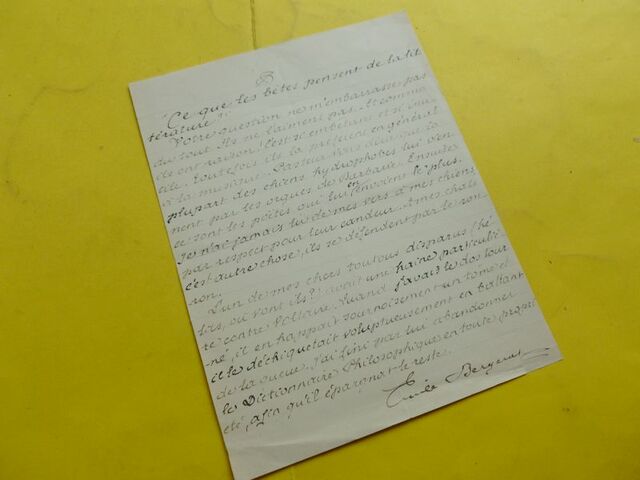 B
"Ce que les bêtes pensent de la lit
térature"?
Votre question ne m'embarrasse pas
du tout. Ils ne l'aiment pas. Et comme
ils ont raison! C'est si embêtant et si inu
tile. Toutefois de la préfèrent en général
à la musique. Pasteur vous dira que la
plupart des chiens hydrophobes lui vien
nent par les orgues de Barbarie. Ensuite
ce sont les poètes qui lui en envoient le plus.
Je n'ai jamais lu de mes vers à mes chiens,
par respect pour leur candeur. A mes chats
c'est autre chose, ils se défendent par le ron.
ron.
L'un de mes chers toutous disparus (hé
las, où vont ils?) avait une haine particuliè
re contre Voltaire. Quand j'avais le dos tour
né, il en happait sournoisement un tome et
il le déchiquetait voluptueusement en frottant
de la queue. J'ai fini par lui abandonner
le Dictionnaire Philosophique en toute propri
été, afin qu'il épargnât le reste.
Emile Bergerat